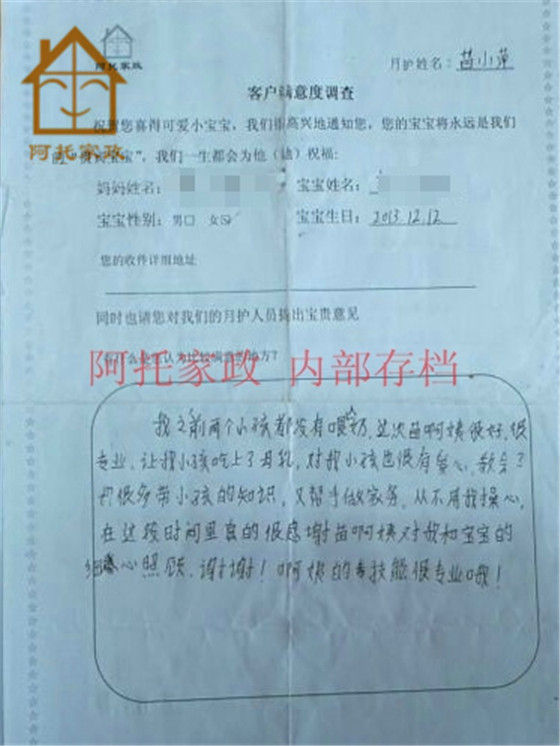 阿托家政
月护姓名：苗小萍
客户满意度调查
祝贺您喜得可爱小宝宝，我们很高兴地通知您，您的宝宝将永远是我们
宝宝”，我们一生都会为他（她）祝福：
阿托家政
妈妈姓名：
宝宝姓名：
宝宝性别：男□ 女☑
宝宝生日：2013.12.12
您的收件详细地址
同时也请您对我们的月护人员提出宝贵意见
阿托家政 内部存档
我之前两个小孩都没有喂奶，这次苗啊姨很好，很
专业、让我小孩吃上了母乳，对我小孩也很有爱心，教会了
我很多带小孩的知识，又帮手做家务，从不用我操心，
在这段时间里真的很感谢苗啊姨对我和宝宝的
细心照顾，谢谢！啊姨的专技能很专业哦！